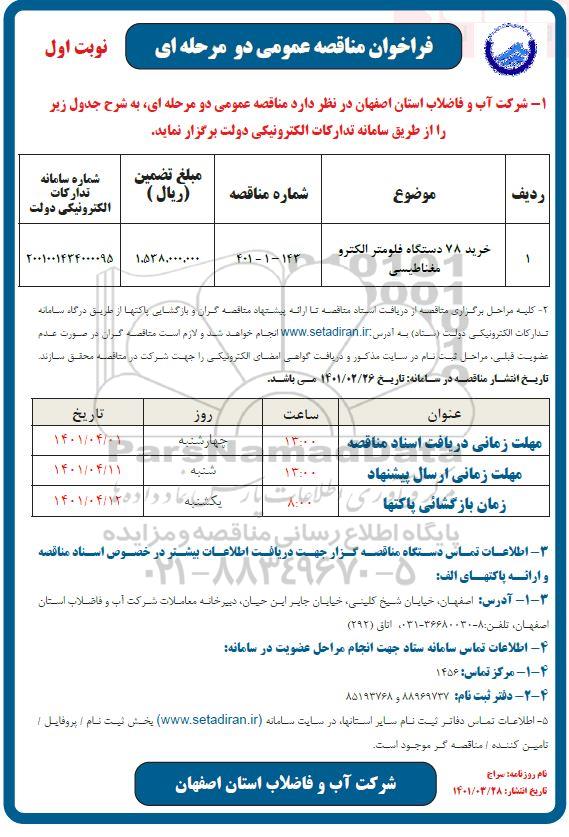 فراخوان مناقصه عمومی دو مرحله ای
نوبت اول
۱- شرکت آب و فاضلاب استان اصفهان در نظر دارد مناقصه عمومی دو مرحله ای، به شرح جدول زیر
را از طریق سامانه تدارکات الکترونیکی دولت برگزار نماید.
ردیف موضوع شماره مناقصه مبلغ تضمین (ریال) شماره سامانه تدارکات الکترونیکی دولت
۱ خرید ۷۸ دستگاه فلومتر الکترو مغناطیسی ۱۴۳-۱-۴۰۱ ۱.۵۳۸.۰۰۰.۰۰۰ ۲۰۰۱۰۰۱۴۳۴۰۰۰۰۹۵
۲- کلیه مراحل برگزاری مناقصه از دریافت اسناد مناقصه تا ارائه پیشنهاد مناقصه گران و بازگشایی پاکتها از طریق درگاه سامانه
تدارکات الکترونیکی دولت (ستاد) به آدرس:www.setadiran.ir انجام خواهد شد و لازم است مناقصه گران در صورت عدم
عضویت قبلی، مراحل ثبت نام در سایت مذکور و دریافت گواهی امضای الکترونیکی را جهت شرکت در مناقصه محقق سازند.
تاریخ انتشار مناقصه در سامانه: تاریخ ۱۴۰۱/۰۲/۲۶ می باشد.
عنوان ساعت روز تاریخ
مهلت زمانی دریافت اسناد مناقصه ۱۳:۰۰ چهارشنبه ۱۴۰۱/۰۴/۰۱
مهلت زمانی ارسال پیشنهاد ۱۳:۰۰ شنبه ۱۴۰۱/۰۴/۱۱
زمان بازگشائی پاکتها ۸:۰۰ یکشنبه ۱۴۰۱/۰۴/۱۲
ParsNamadData
پایگاه اطلاع رسانی مناقصه و مزایده
۰۲۱-۸۸۳۴۹۶۷۰-۵
۳- اطلاعات تماس دستگاه مناقصه گزار جهت دریافت اطلاعات بیشتر در خصوص اسناد مناقصه
و ارائه پاکتهای الف:
۳-۱- آدرس: اصفهان، خیابان شیخ کلینی، خیابان جابر ابن حیان، دبیرخانه معاملات شرکت آب و فاضلاب استان
اصفهان، تلفن:۸-۳۶۶۸۰۰۳۰-۰۳۱، اتاق (۲۹۲)
۴- اطلاعات تماس سامانه ستاد جهت انجام مراحل عضویت در سامانه:
۴-۱- مرکز تماس: ۱۴۵۶
۴-۲- دفتر ثبت نام: ۸۸۹۶۹۷۳۷ و ۸۵۱۹۳۷۶۸
۵- اطلاعات تماس دفاتر ثبت نام سایر استانها، در سایت سامانه (www.setadiran.ir) بخش ثبت نام / پروفایل /
تامین کننده / مناقصه گر موجود است.
شرکت آب و فاضلاب استان اصفهان
نام روزنامه: سراج
تاریخ انتشار: ۱۴۰۱/۰۳/۲۸